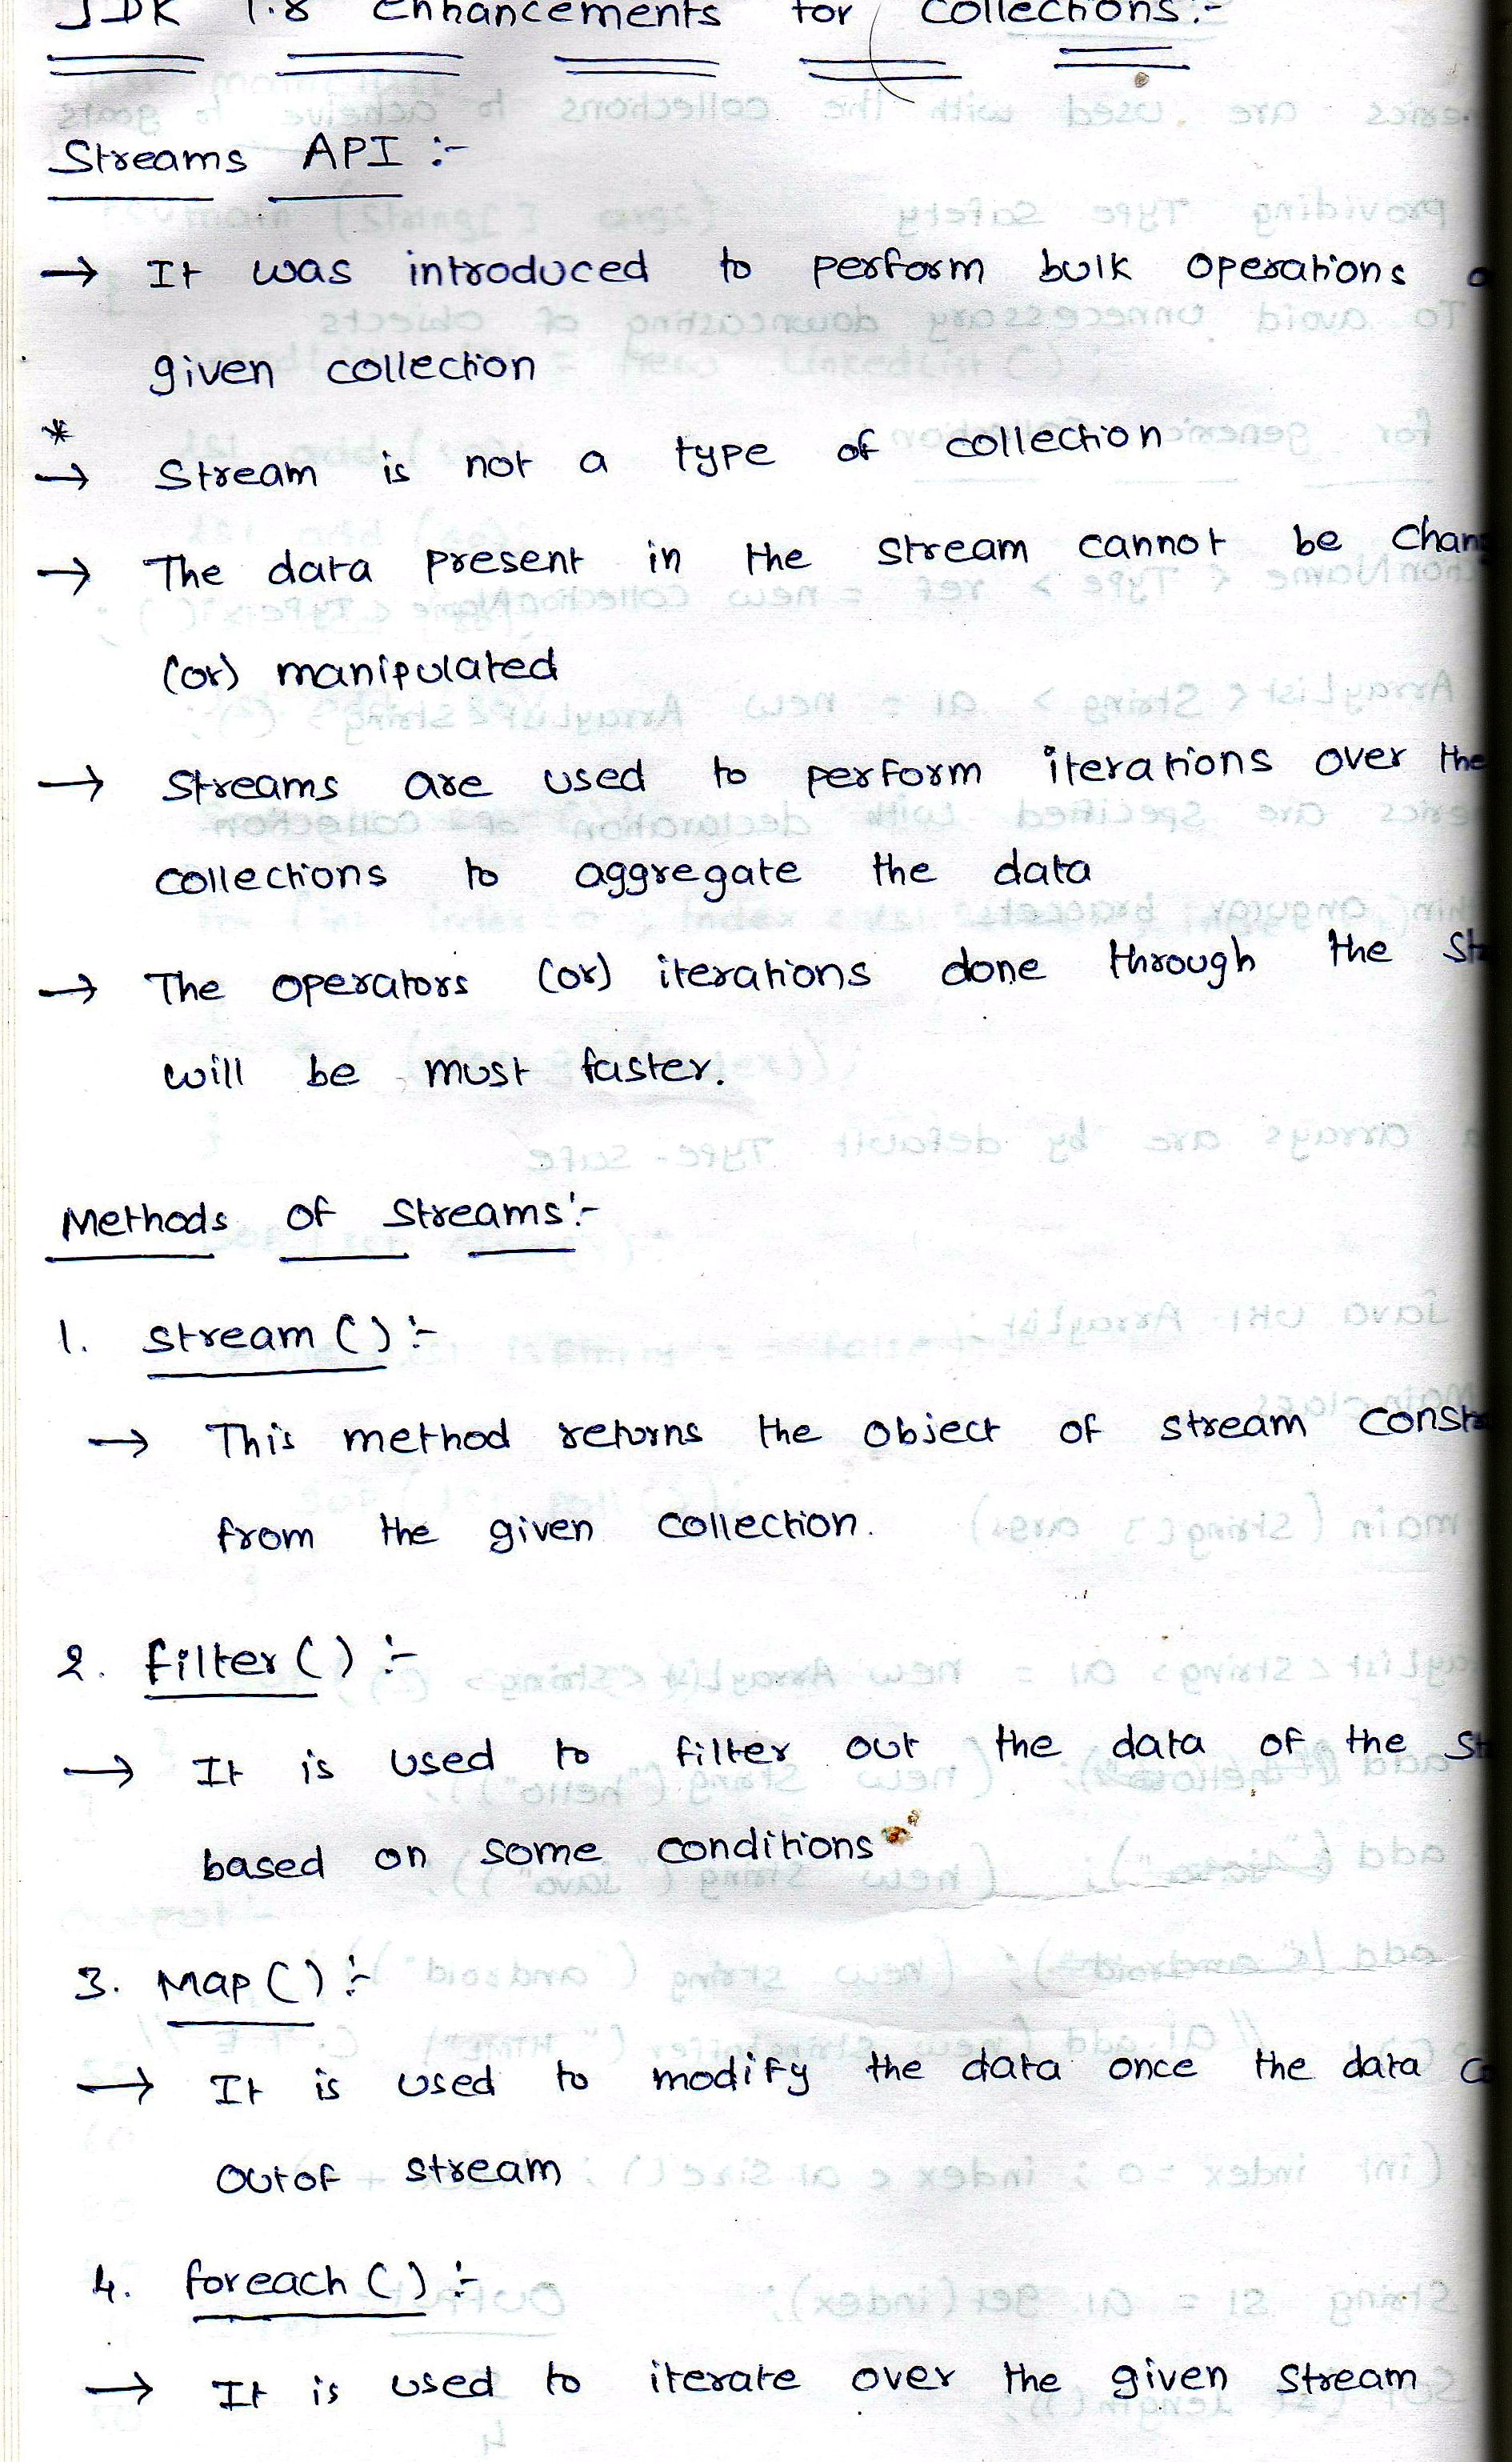 JDK 1.8 Enhancements for Collections:-
Streams API :-
→ It was introduced to perform bulk operations
given collection
*
→ Stream is not a type of collection
→ The data present in the stream cannot be chan
(or) manipulated
→ Streams are used to perform iterations over the
collections to aggregate the data
→ The operators (or) iterations done through the
will be must faster.
Methods of Streams:-
1. stream():-
→ This method returns the object of stream const
from the given collection.
2. filter() :-
→ It is used to filter out the data of the
based on some conditions
3. Map() :-
→ It is used to modify the data once the data
outof stream
4. foreach() :-
→ It is used to iterate over the given stream